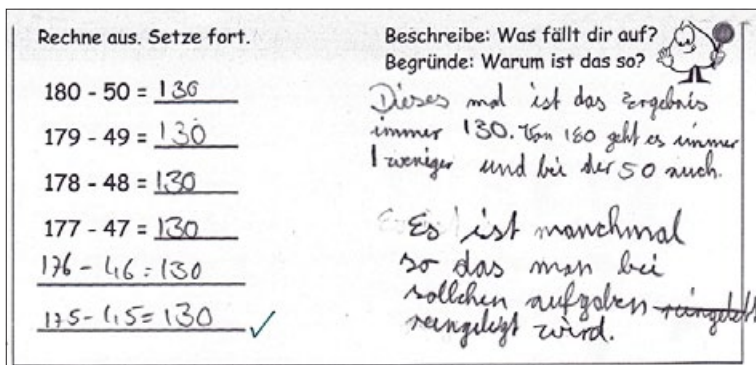 Rechne aus. Setze fort.
180 - 50 = 130
179 - 49 = 130
178 - 48 = 130
177 - 47 = 130
176 - 46 = 130
175 - 45 = 130
Beschreibe: Was fällt dir auf?
Begründe: Warum ist das so?
Dieses mal ist das Ergebnis
immer 130. Von 180 geht es immer
1 weniger und bei der 50 auch.
Es ist manchmal
so das man bei
sollchen aufgaben
reingelegt wird.